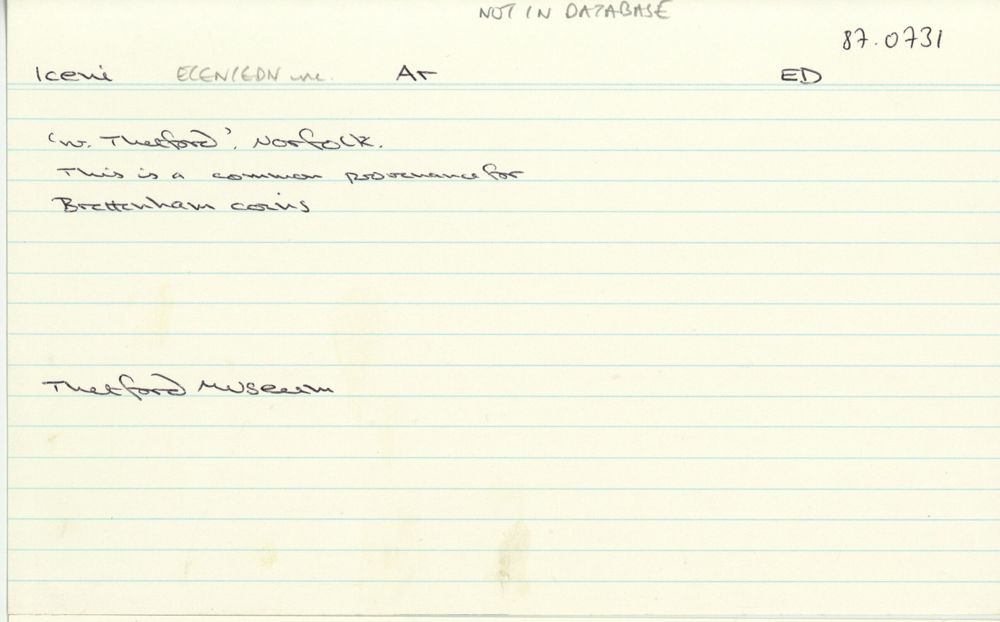 NOT IN DATABASE
87.0731
Iceni ECEN/EDN unc. Ar ED
'nr. Thetford'. Norfolk.
This is a common provenance for
Brettenham coins
Thetford Museum